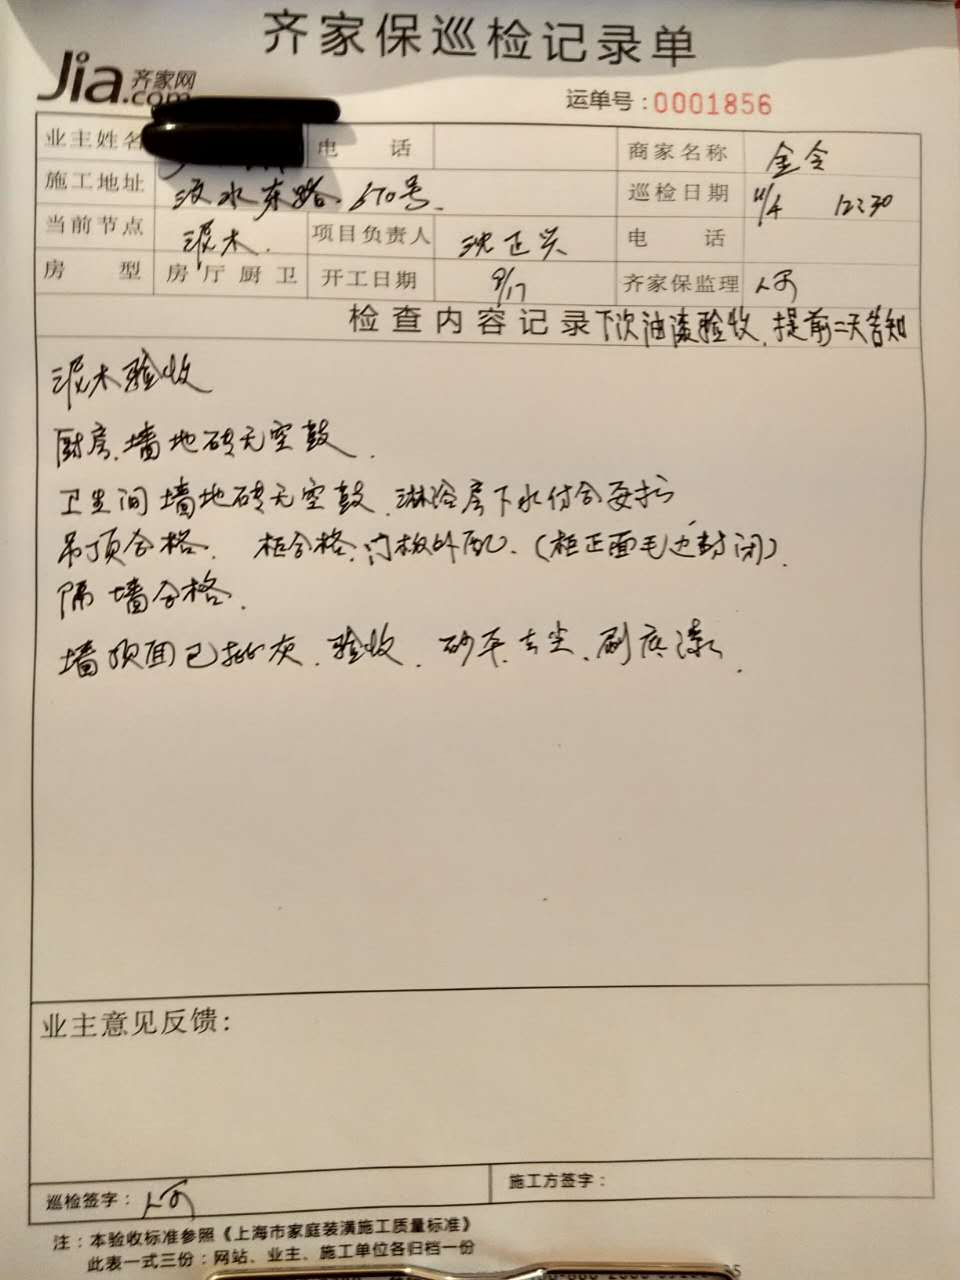 齐家保巡检记录单
Jia.com 齐家网
运单号:0001856
业主姓名 电话 商家名称 金令
施工地址 汶水东路 670号. 巡检日期 11/4 12:30
当前节点 泥木. 项目负责人 沈正兴 电话
房型 房厅厨卫 开工日期 9/17 齐家保监理
检查内容记录 下次油漆验收,提前二天告知
泥木验收
厨房.墙地砖无空鼓.
卫生间墙地砖无空鼓.淋浴房下水
吊顶合格. 柜合格.门板外配.(柜正面毛边封闭).
隔墙合格.
墙顶面已批灰.验收.砂平.去尘.刷底漆.
业主意见反馈:
巡检签字:
施工方签字:
注:本验收标准参照《上海市家庭装潢施工质量标准》
此表一式三份:网站、业主、施工单位各归档一份